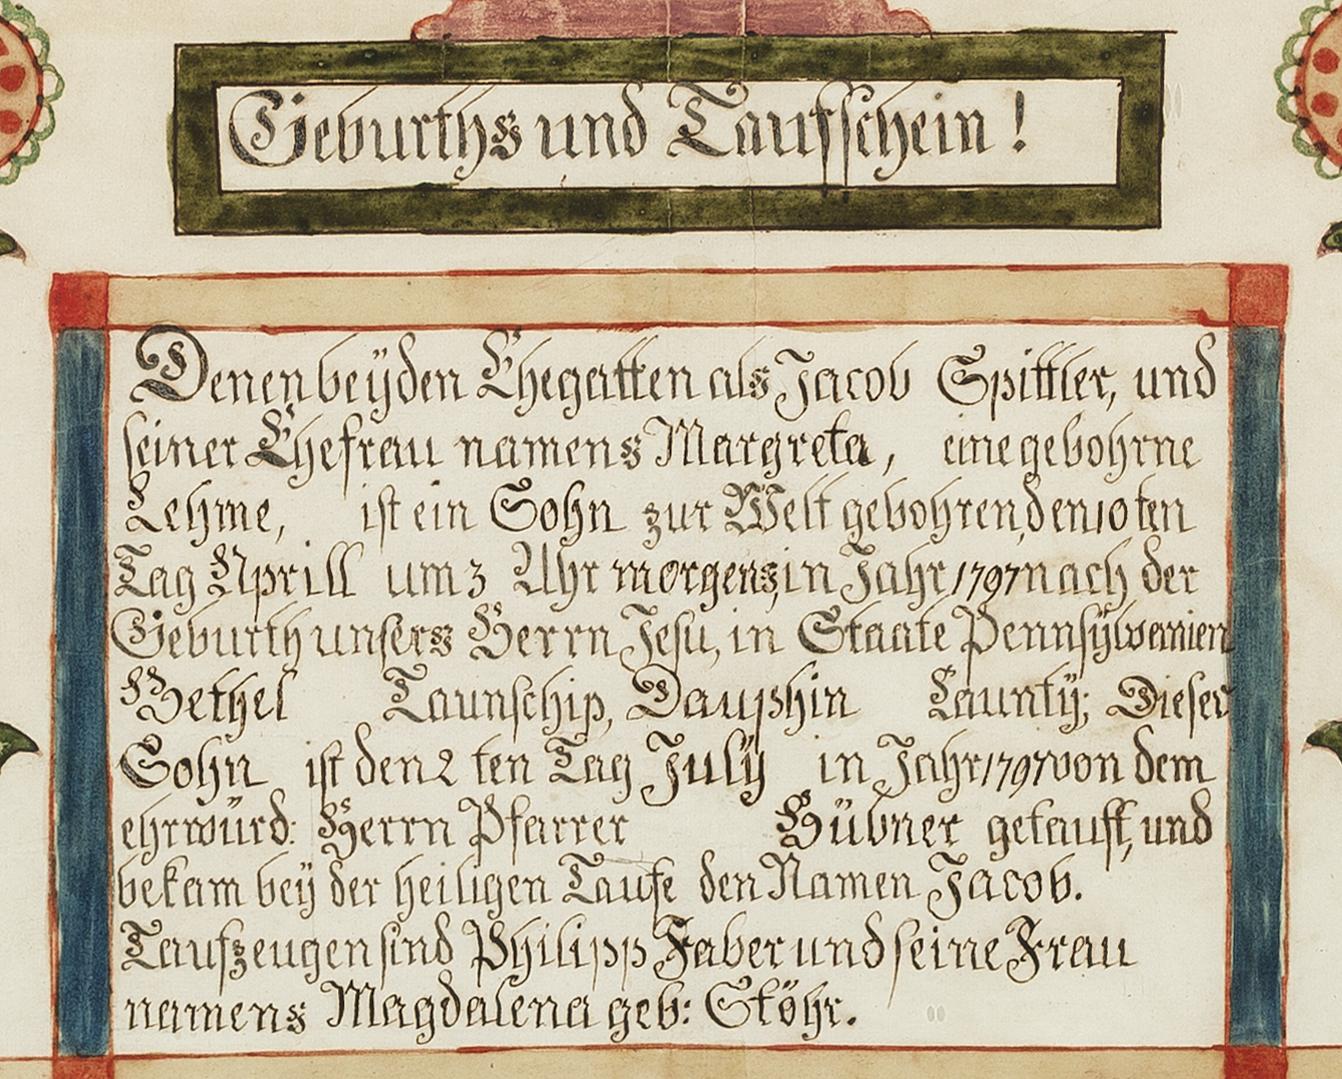 Geburths und Taufsschein!
Denen beÿden Ehegatten als Jacob Spittler, und
seiner Ehefrau namens Margreta, eine gebohrne
Lehme, ist ein Sohn zur Welt gebohren, den 10 ten
Tag Aprill um 3 Uhr morgens, in Jahr 1797 nach der
Geburth unsers Herrn Jesu, in Staate Pennsÿlvanien
Bethel Taunschip, Dauphin Cauntÿ; Dieser
Sohn ist den 2 ten Tag Julÿ in Jahr 1797 von dem
ehrwürd: Herrn Pfarrer Hübner getauft, und
bekam beÿ der heiligen Taufe den Namen Jacob.
Taufzeugen sind Philipp Faber und seine Frau
namens Magdalena geb: Stöhr.